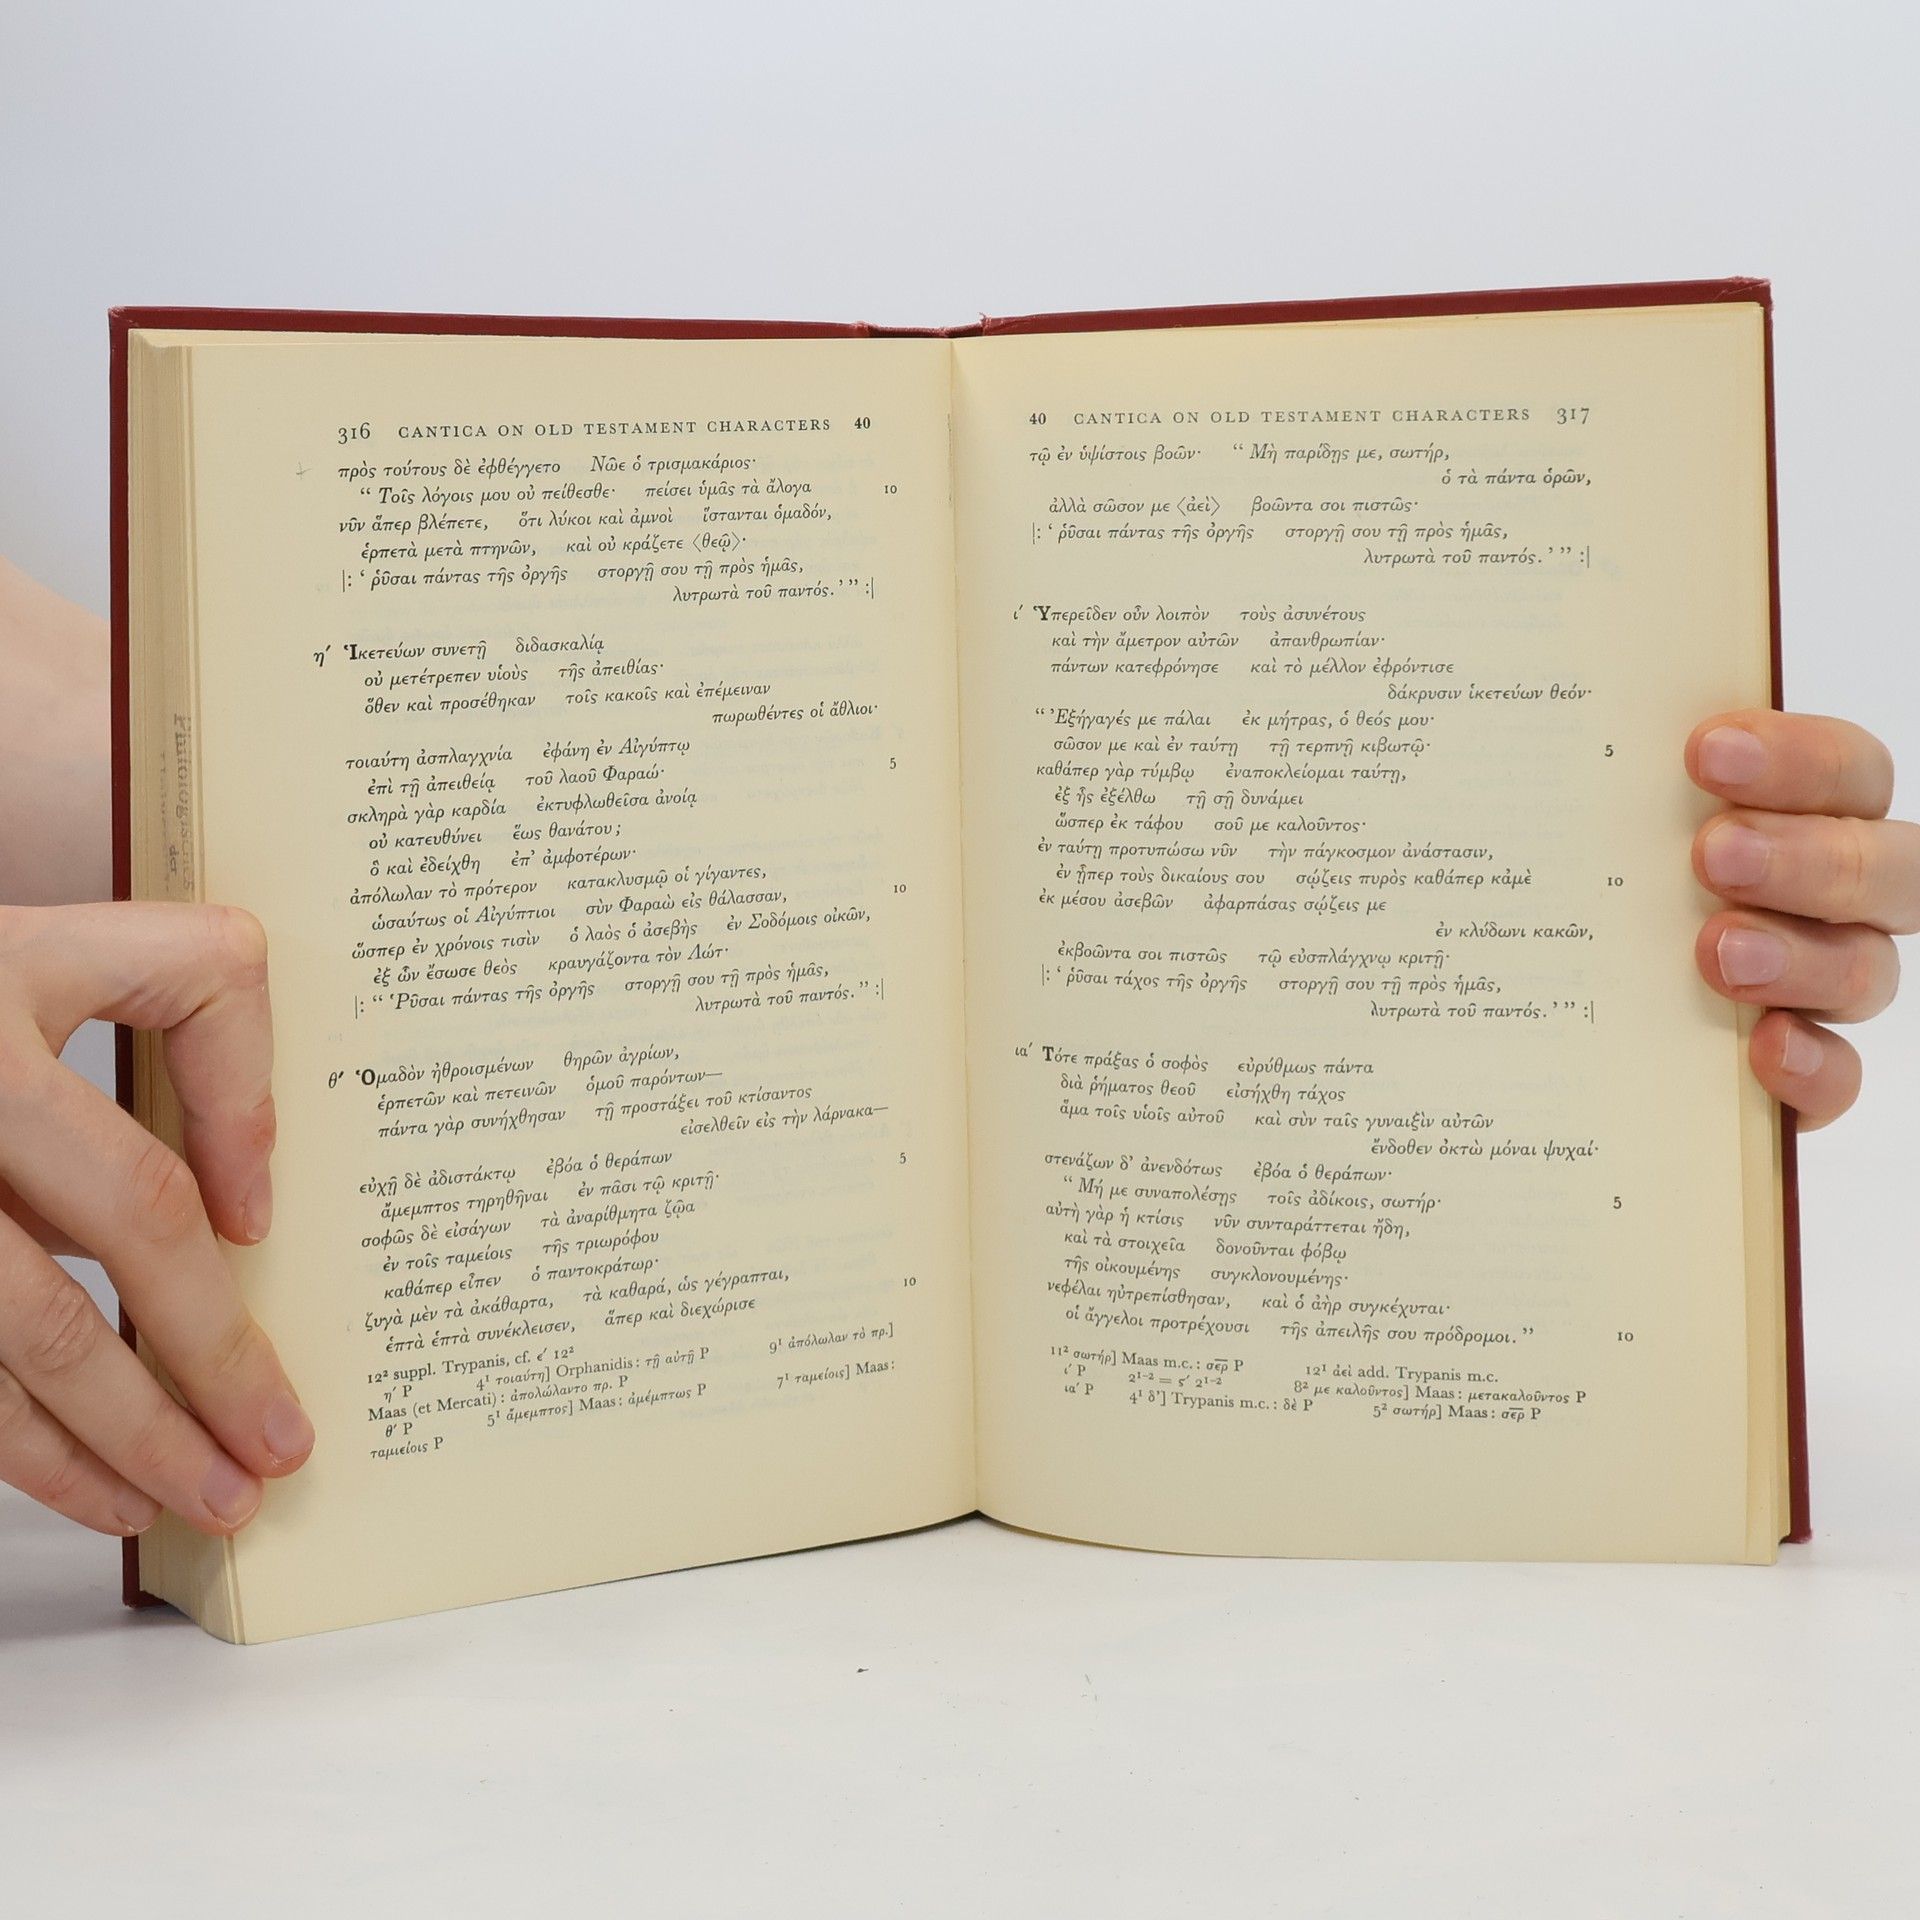 316 CANTICA ON OLD TESTAMENT CHARACTERS 40
πρὸς τούτους δὲ ἐφθέγγετο Νῶε ὁ τρισμακάριος·
“ Τοῖς λόγοις μου οὐ πείθεσθε· πείσει ὑμᾶς τὰ ἄλογα 10
νῦν ἅπερ βλέπετε, ὅτι λύκοι καὶ ἀμνοὶ ἵστανται ὁμαδόν,
ἑρπετὰ μετὰ πτηνῶν, καὶ οὐ κράζετε ⟨θεῷ⟩·
|: ‘ ῥῦσαι πάντας τῆς ὀργῆς στοργῇ σου τῇ πρὸς ἡμᾶς,
λυτρωτὰ τοῦ παντός.’ ” :|
η′ Ἱκετεύων συνετῇ διδασκαλίᾳ
οὐ μετέτρεπεν υἱοὺς τῆς ἀπειθίας·
ὅθεν καὶ προσέθηκαν τοῖς κακοῖς καὶ ἐπέμειναν
πωρωθέντες οἱ ἄθλιοι·
τοιαύτη ἀσπλαγχνία ἐφάνη ἐν Αἰγύπτῳ
ἐπὶ τῇ ἀπειθείᾳ τοῦ λαοῦ Φαραώ· 5
σκληρὰ γὰρ καρδία ἐκτυφλωθεῖσα ἀνοίᾳ
οὐ κατευθύνει ἕως θανάτου;
ὃ καὶ ἐδείχθη ἐπ’ ἀμφοτέρων·
ἀπόλωλαν τὸ πρότερον κατακλυσμῷ οἱ γίγαντες,
ὡσαύτως οἱ Αἰγύπτιοι σὺν Φαραὼ εἰς θάλασσαν, 10
ὥσπερ ἐν χρόνοις τισὶν ὁ λαὸς ὁ ἀσεβὴς ἐν Σοδόμοις οἰκῶν,
ἐξ ὧν ἔσωσε θεὸς κραυγάζοντα τὸν Λώτ·
|: “ Ῥῦσαι πάντας τῆς ὀργῆς στοργῇ σου τῇ πρὸς ἡμᾶς,
λυτρωτὰ τοῦ παντός.” :|
θ′ Ὁμαδὸν ἠθροισμένων θηρῶν ἀγρίων,
ἑρπετῶν καὶ πετεινῶν ὁμοῦ παρόντων—
πάντα γὰρ συνήχθησαν τῇ προστάξει τοῦ κτίσαντος
εἰσελθεῖν εἰς τὴν λάρνακα—
εὐχῇ δὲ ἀδιστάκτῳ ἐβόα ὁ θεράπων
ἄμεμπτος τηρηθῆναι ἐν πᾶσι τῷ κριτῇ· 5
σοφῶς δὲ εἰσάγων τὰ ἀναρίθμητα ζῷα
ἐν τοῖς ταμείοις τῆς τριωρόφου
καθάπερ εἶπεν ὁ παντοκράτωρ·
ζυγὰ μὲν τὰ ἀκάθαρτα, τὰ καθαρά, ὡς γέγραπται,
ἑπτὰ ἑπτὰ συνέκλεισεν, ἅπερ καὶ διεχώρισε 10
12² suppl. Trypanis, cf. ϵ′ 12²
η′ P 4¹ τοιαύτη] Orphanidis: τῇ αὐτῇ P 9¹ ἀπόλωλαν τὸ πρ.]
Maas (et Mercati): ἀπολώλαντο πρ. P
θ′ P 5¹ ἄμεμπτος] Maas: ἀμέμπτως P 7¹ ταμείοις] Maas:
ταμιείοις P
40 CANTICA ON OLD TESTAMENT CHARACTERS 317
τῷ ἐν ὑψίστοις βοῶν· “ Μὴ παρίδῃς με, σωτήρ,
ὁ τὰ πάντα ὁρῶν,
ἀλλὰ σῶσον με ⟨ἀεὶ⟩ βοῶντα σοι πιστῶς·
|: ‘ ῥῦσαι πάντας τῆς ὀργῆς στοργῇ σου τῇ πρὸς ἡμᾶς,
λυτρωτὰ τοῦ παντός.’ ” :|
ι′ Ὑπερεῖδεν οὖν λοιπὸν τοὺς ἀσυνέτους
καὶ τὴν ἄμετρον αὐτῶν ἀπανθρωπίαν·
πάντων κατεφρόνησε καὶ τὸ μέλλον ἐφρόντισε
δάκρυσιν ἱκετεύων θεόν·
“ Ἐξήγαγές με πάλαι ἐκ μήτρας, ὁ θεός μου·
σῶσον με καὶ ἐν ταύτῃ τῇ τερπνῇ κιβωτῷ· 5
καθάπερ γὰρ τύμβῳ ἐναποκλείομαι ταύτῃ,
ἐξ ἧς ἐξέλθω τῇ σῇ δυνάμει
ὥσπερ ἐκ τάφου σοῦ με καλοῦντος·
ἐν ταύτῃ προτυπώσω νῦν τὴν πάγκοσμον ἀνάστασιν,
ἐν ᾗπερ τοὺς δικαίους σου σῴζεις πυρὸς καθάπερ κἀμὲ 10
ἐκ μέσου ἀσεβῶν ἀφαρπάσας σῴζεις με
ἐν κλύδωνι κακῶν,
ἐκβοῶντα σοι πιστῶς τῷ εὐσπλάγχνῳ κριτῇ·
|: ‘ ῥῦσαι τάχος τῆς ὀργῆς στοργῇ σου τῇ πρὸς ἡμᾶς,
λυτρωτὰ τοῦ παντός.’ ” :|
ια′ Τότε πράξας ὁ σοφὸς εὐρύθμως πάντα
διὰ ῥήματος θεοῦ εἰσήχθη τάχος
ἅμα τοῖς υἱοῖς αὐτοῦ καὶ σὺν ταῖς γυναιξὶν αὐτῶν
ἔνδοθεν ὀκτὼ μόναι ψυχαί·
στενάζων δ’ ἀνενδότως ἐβόα ὁ θεράπων·
“ Μή με συναπολέσῃς τοῖς ἀδίκοις, σωτήρ· 5
αὐτὴ γὰρ ἡ κτίσις νῦν συνταράττεται ἤδη,
καὶ τὰ στοιχεῖα δονοῦνται φόβῳ
τῆς οἰκουμένης συγκλονουμένης·
νεφέλαι ηὐτρεπίσθησαν, καὶ ὁ ἀὴρ συγκέχυται·
οἱ ἄγγελοι προτρέχουσι τῆς ἀπειλῆς σου πρόδρομοι.” 10
11² σωτήρ] Maas m.c.: σε̅ρ̅ P 12¹ ἀεὶ add. Trypanis m.c.
ι′ P 2¹⁻² = ϛ′ 2¹⁻² 8² με καλοῦντος] Maas: μετακαλοῦντος P
ια′ P 4¹ δ’] Trypanis m.c.: δὲ P 5² σωτήρ] Maas: σε̅ρ̅ P